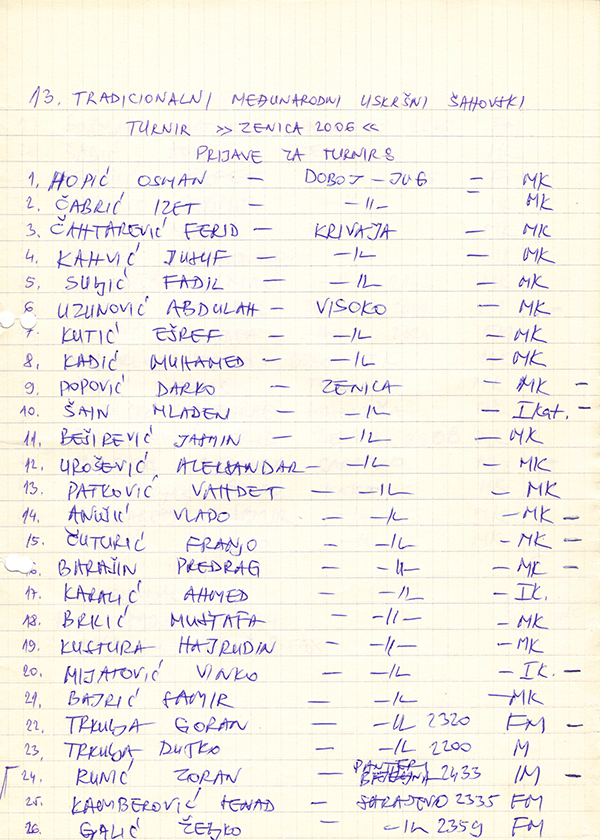 13. TRADICIONALNI MEĐUNARODNI USKRŠNI ŠAHOVSKI
TURNIR >> ZENICA 2006 <<
PRIJAVE ZA TURNIR S
1. HOPIĆ OSMAN — DOBOJ-JUG = MK
2. ČABRIĆ IZET — -11- MK
3. ČAHTAREVIĆ FERID — KRIVAJA — MK
4. KAHVIĆ JUSUF — -11- — MK
5. SULJIĆ FADIL — -11- — MK
6 UZUNOVIĆ ABDULAH — VISOKO — MK
7. KUTIĆ EŠREF — -11- — MK
8. KADIĆ MUHAMED — -11- — MK
9. POPOVIĆ DARKO — ZENICA — MK —
10. ŠAIN MLADEN — -11- — I kat. —
11. BEŠIREVIĆ JASMIN — -11- — MK
12. UROŠEVIĆ ALEKSANDAR — -11- — MK
13. PATKOVIĆ VAHDET — -11- — MK
14. VLADO — -11- — MK —
15. ČUTURIĆ FRANJO — -11- — MK —
6. BARAŠIN PREDRAG — -11- — MK —
17. KARALIĆ AHMED — -11- — IK.
18. BRKIĆ MUSTAFA — -11- — MK
19. KUSTURA HAJRUDIN — -11- — MK
20. MIJATOVIĆ VINKO — -11- — IK. —
21. BAJRIĆ SAMIR — -11- — MK
22. TRKULJA GORAN — -11- 2320 FM —
23. TRKULJA DUŠKO — -11- 2200 M
24. RUNIĆ ZORAN — 2433 IM —
25. KAMBEROVIĆ SENAD — SARAJEVO 2335 FM
26. GALIĆ ŽELJKO — -11- 2359 FM